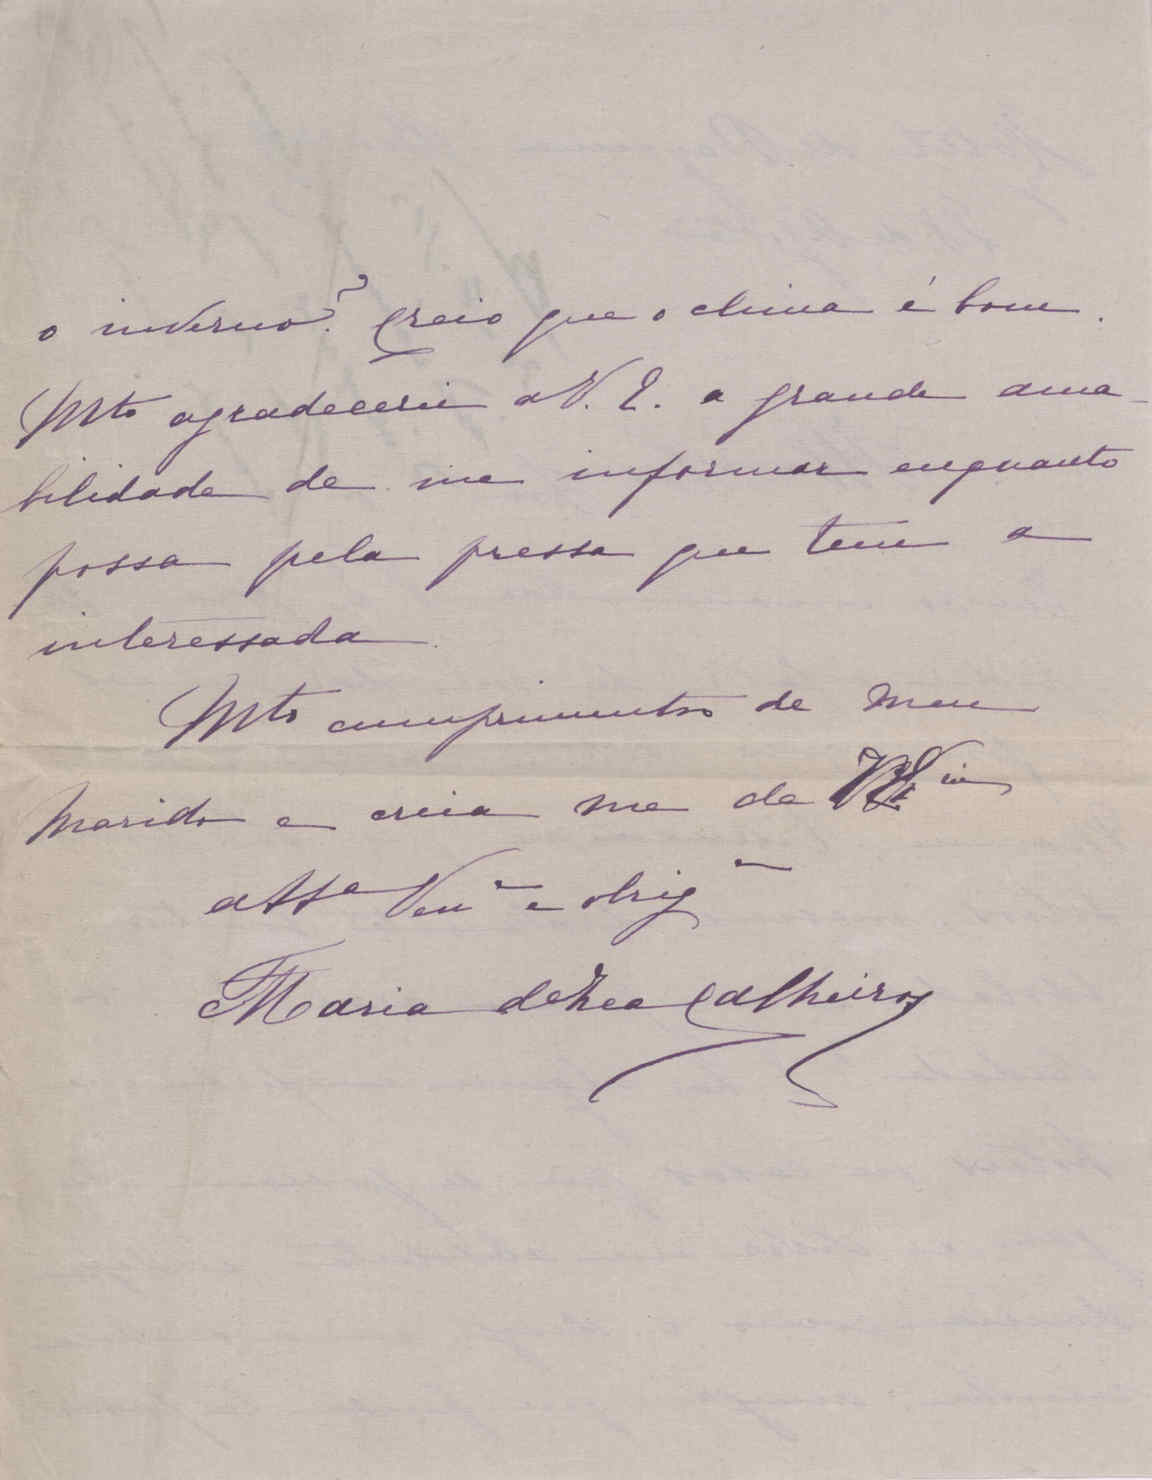 o inverno? Creio que o clima é bom.
Mto agradecerei a V. E. a grande ama-
bilidade de me informar enquanto
possa pela pressa que tem a
interessada.
Mtos cumprimentos de meu
Marido e creia me de V.
atta Venra e obriga
Maria de Calheiros